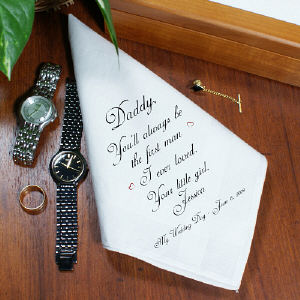 Daddy,
You'll always be
the first man
I ever loved.
Your little girl,
Jessica
My Wedding Day - June